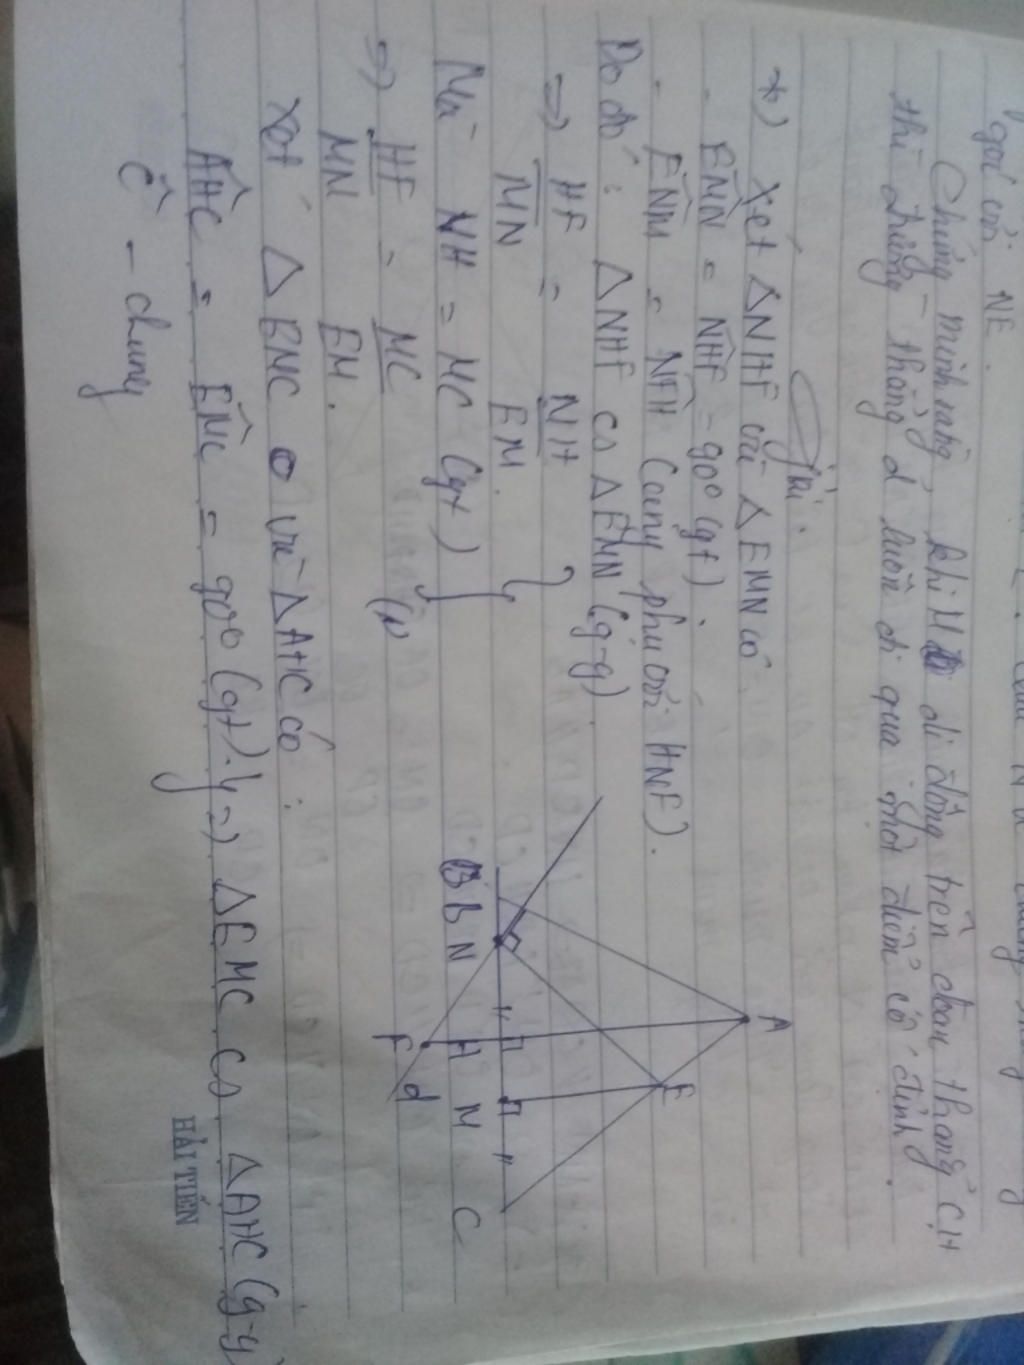 góc với NE.
Chứng minh rằng, khi M di động trên đoạn thẳng CH
thì đường thẳng d luôn đi qua một điểm cố định.
Giải.
*) Xét △NHF và △EMN có
- EMN = NHF = 90° (gt).
- ENM = NFH (cùng phụ với HNF).
Do đó: △NHF ∽ △EMN (g-g).
=> HF/MN = NH/EM. }
Mà NH = MC (gt) }
=> HF/MN = MC/EM. (1)
Xét △EMC và △AHC có:
AHC = EMC = 90° (gt). } => △EMC ∽ △AHC (g-g)
C - chung
A
E
B N H M C
F d
HẢI TIẾN